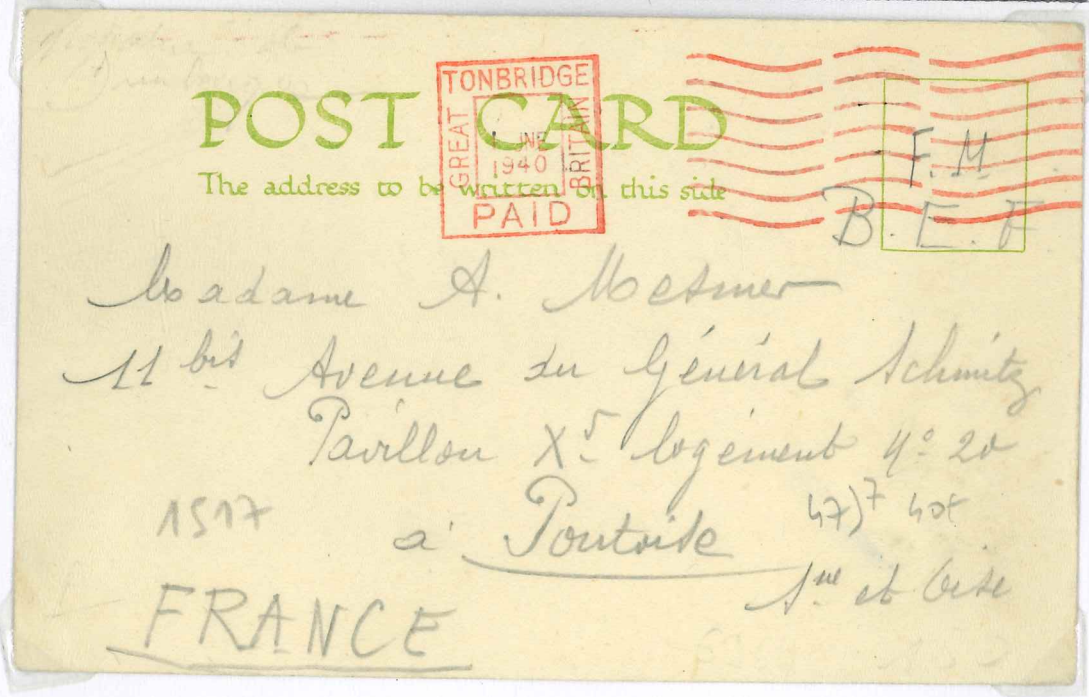 POST CARD
The address to be written on this side
TONBRIDGE
GREAT
BRITAIN
1 JNE
1940
PAID
F. M
B. E. F
Madame A. Mesmer
11 bis Avenue du Général Schmitz
Pavillon Xr logement No 20
1517
à Pontoise
Sne et Oise
FRANCE